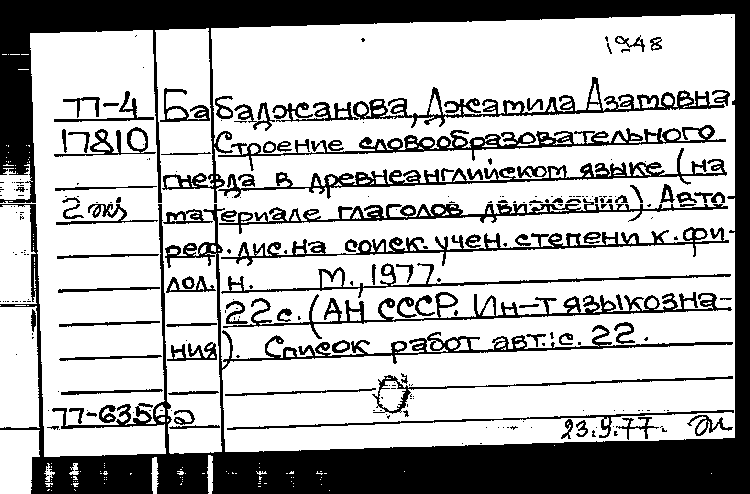 1948
77-4 Бабаджанова, Джамила Азатовна.
17810 Строение словообразовательного
гнезда в древнеанглийском языке (на
2 экз материале глаголов движения). Авто-
реф. дис. на соиск. учен. степени к. фи-
лол. н. М., 1977.
22 с. (АН СССР. Ин-т языкозна-
ния). Список работ авт.: с. 22.
77-6356а
23.9.77.